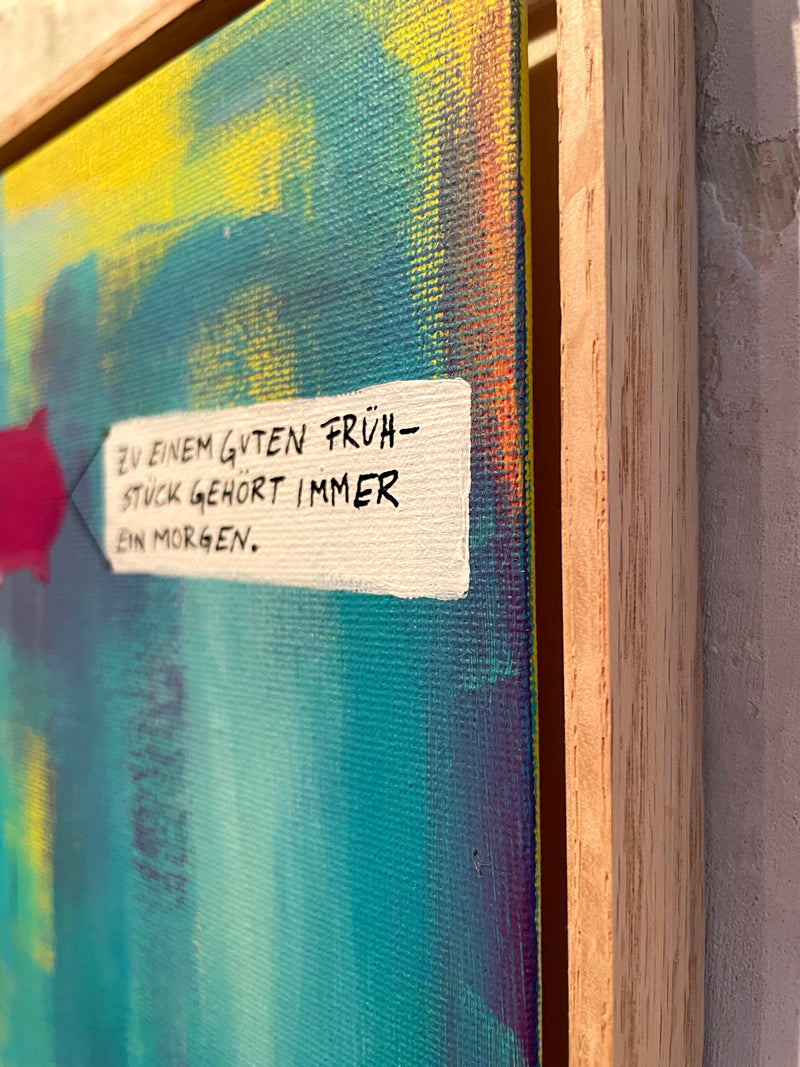 ZU EINEM GUTEN FRÜH-
STÜCK GEHÖRT IMMER
EIN MORGEN.